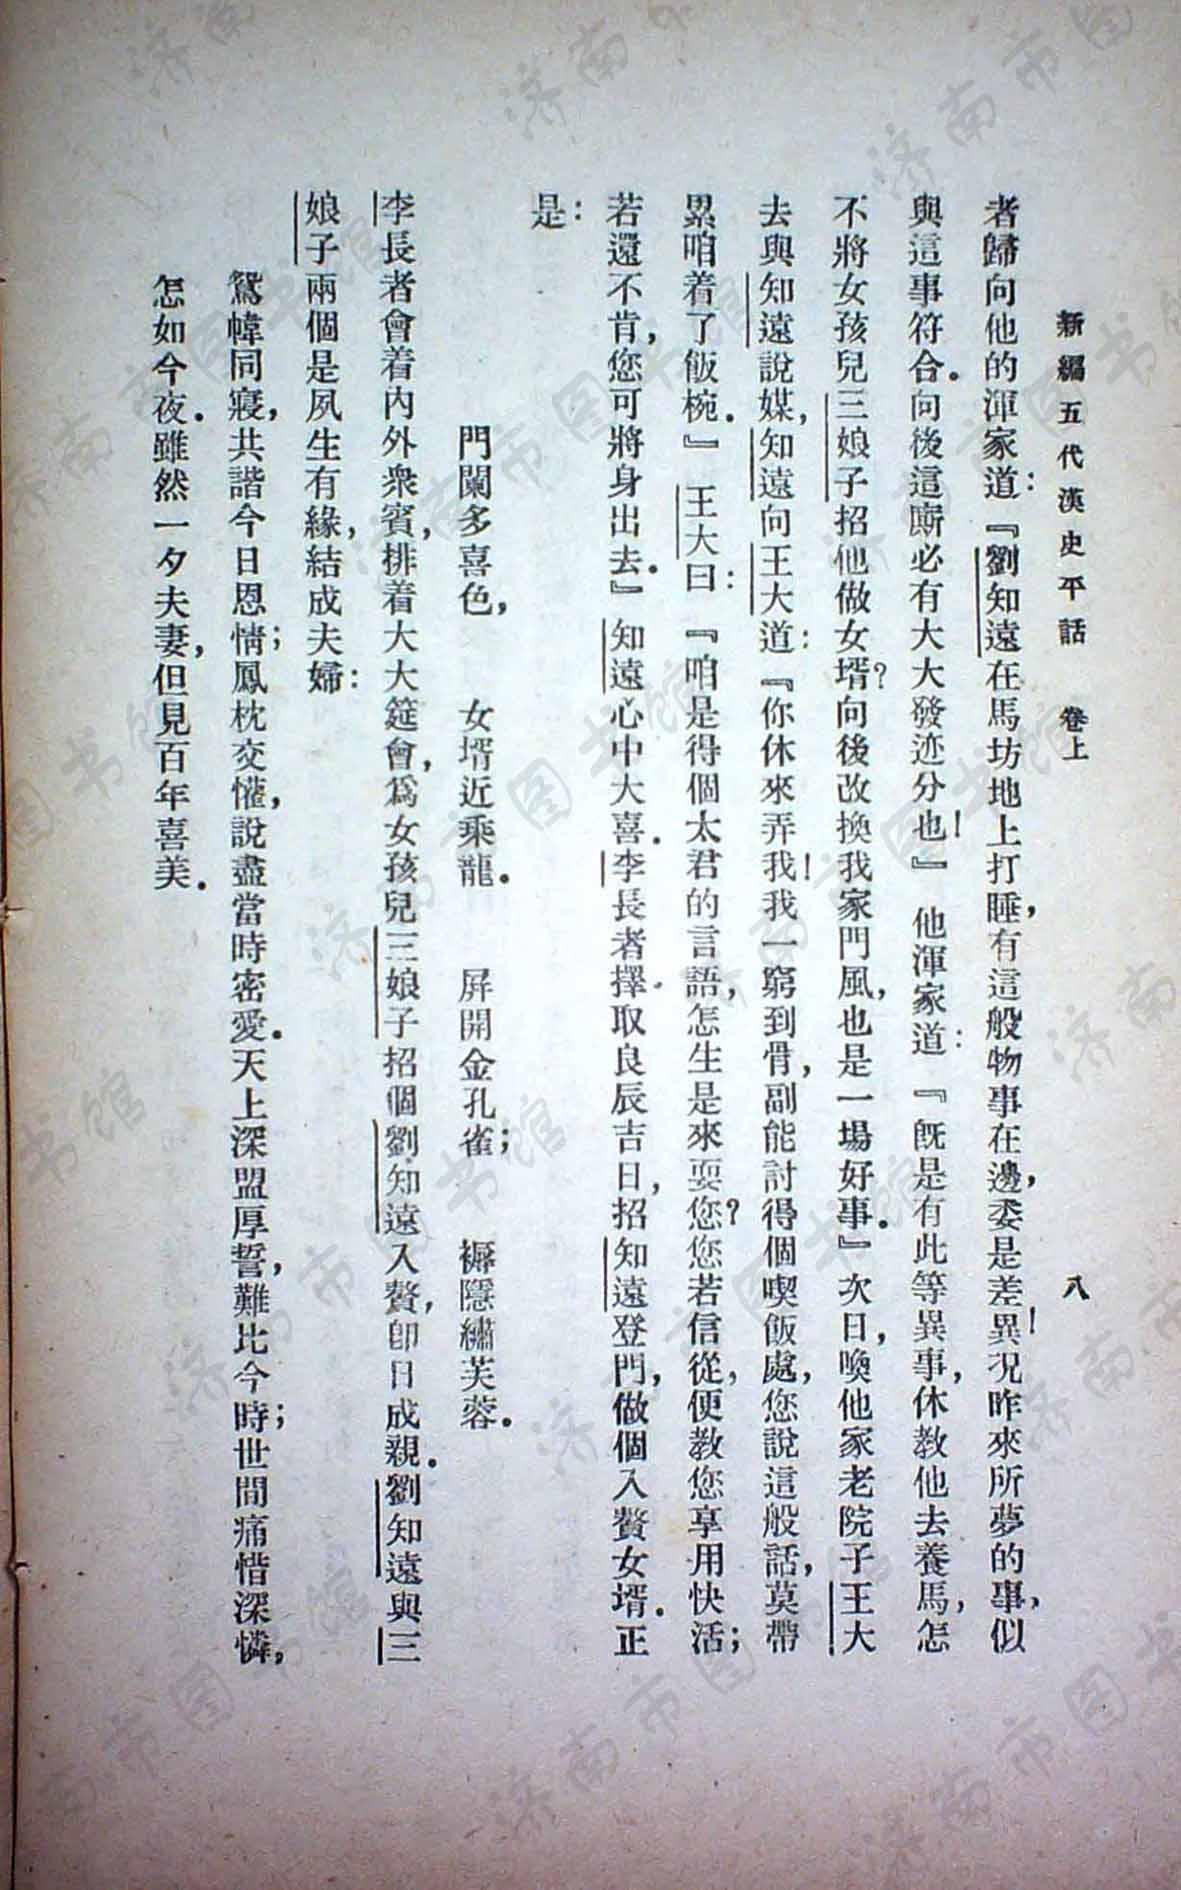 新編五代漢史平話　卷上　八
者歸向他的渾家道：『劉知遠在馬坊地上打睡，有這般物事在邊，委是差異！况昨來所夢的事，似
與這事符合．向後這廝必有大大發迹分也！』他渾家道：『旣是有此等異事，休教他去養馬，怎
不將女孩兒三娘子招他做女壻？向後改換我家門風，也是一場好事．』次日，喚他家老院子王大
去與知遠說媒，知遠向王大道：『你休來弄我！我一窮到骨，副能討得個喫飯處，您說這般話，莫帶
累咱着了飯椀．』王大曰：『咱是得個太君的言語，怎生是來耍您？您若信從，便教您享用快活；
若還不肯，您可將身出去．』知遠心中大喜．李長者擇取良辰吉日，招知遠登門，做個入贅女壻．正
是：
門闌多喜色，　女壻近乘龍．　屏開金孔雀；　褥隱繡芙蓉．
李長者會着內外衆賓，排着大大筵會，爲女孩兒三娘子招個劉知遠入贅，卽日成親．劉知遠與三
娘子兩個是夙生有緣，結成夫婦：
鴛幃同寢，共諧今日恩情；鳳枕交懽，說盡當時密愛．天上深盟厚誓，難比今時；世間痛惜深憐，
怎如今夜．雖然一夕夫妻，但見百年喜美．
济南市图书馆